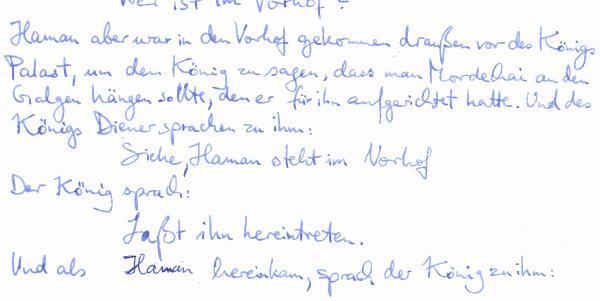 Wer ist im Vorhof?
Haman aber war in den Vorhof gekommen draußen vor des Königs
Palast, um dem König zu sagen, dass man Mordehai an den
Galgen hängen sollte, den er für ihn aufgerichtet hatte. Und des
Königs Diener sprachen zu ihm:
Siehe, Haman steht im Vorhof
Der König sprach:
Laßt ihn hereintreten.
Und als Haman hereinkam, sprach der König zu ihm: